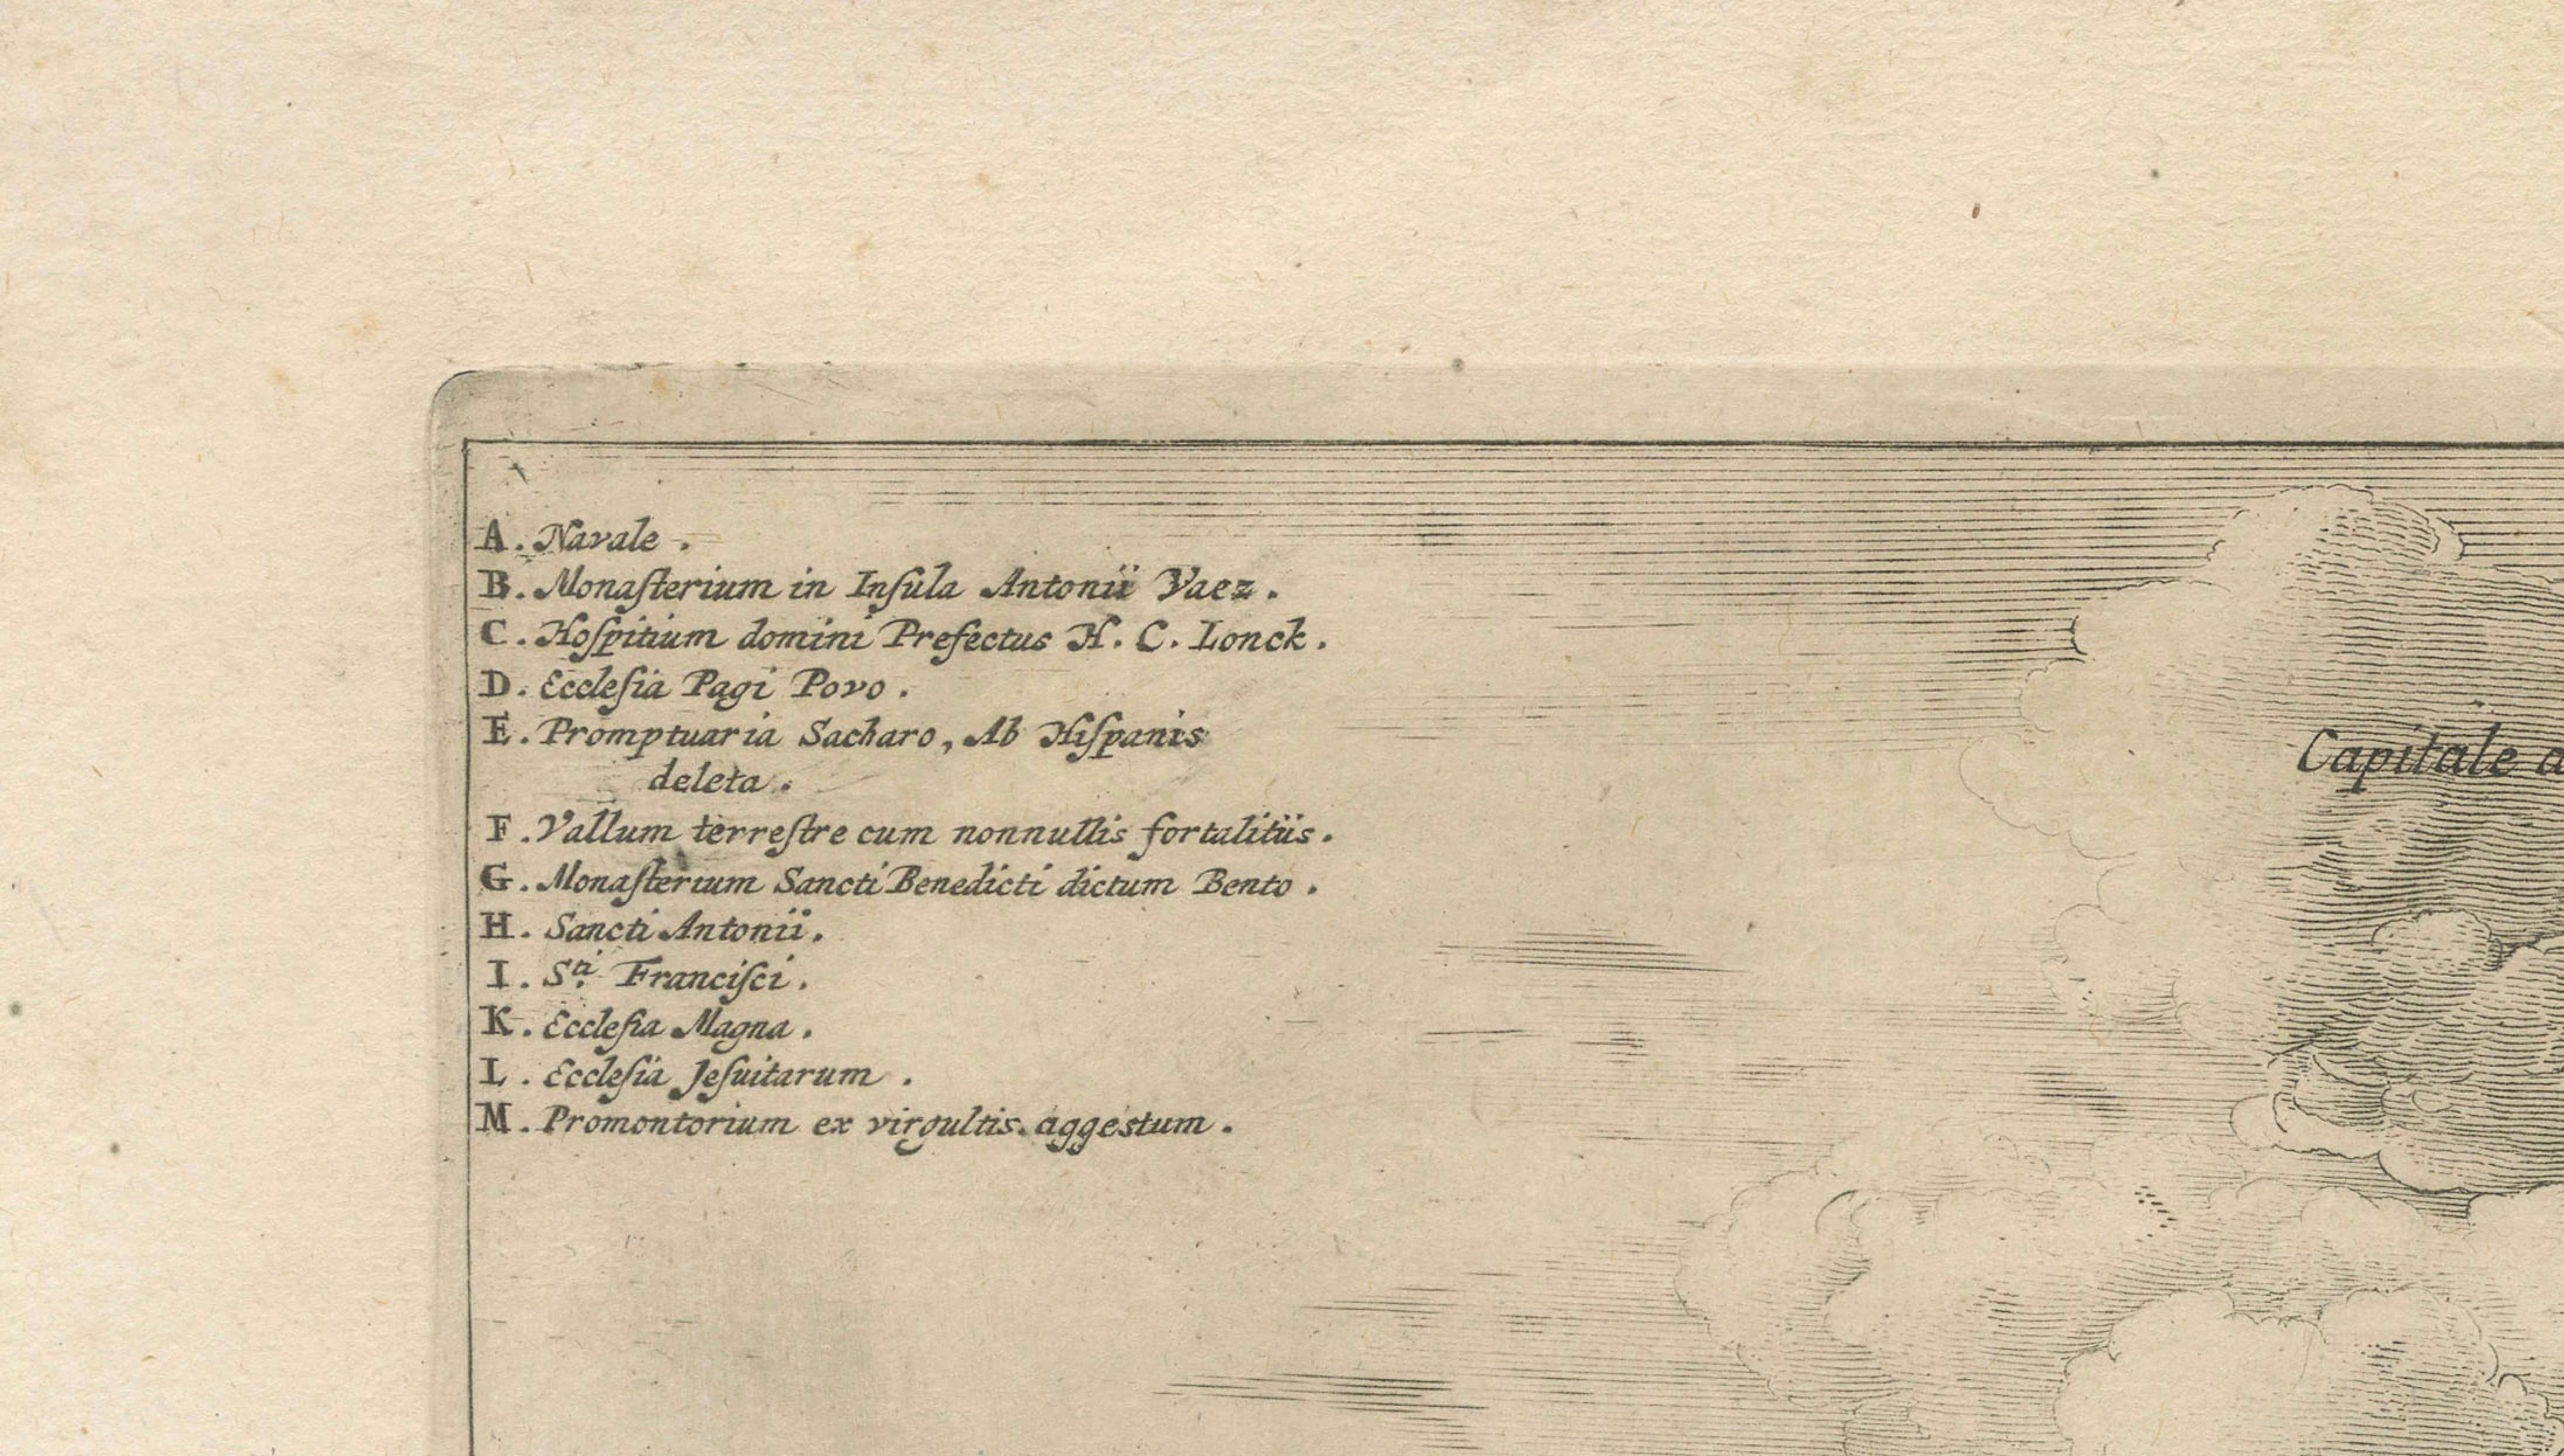 A. Navale.
B. Monaſterium in Inſula Antonii Vaez.
C. Hoſpitium domini Prefectus H. C. Lonck.
D. Eccleſia Pagi Povo.
E. Promptuaria Sacharo, Ab Hiſpanis
deleta.
F. Vallum terreſtre cum nonnullis fortalitiis.
G. Monaſterium Sancti Benedicti dictum Bento.
H. Sancti Antonii.
I. S.ti Franciſci.
K. Eccleſia Magna.
L. Eccleſia Jeſuitarum.
M. Promontorium ex virgultis. aggestum.
Capitale